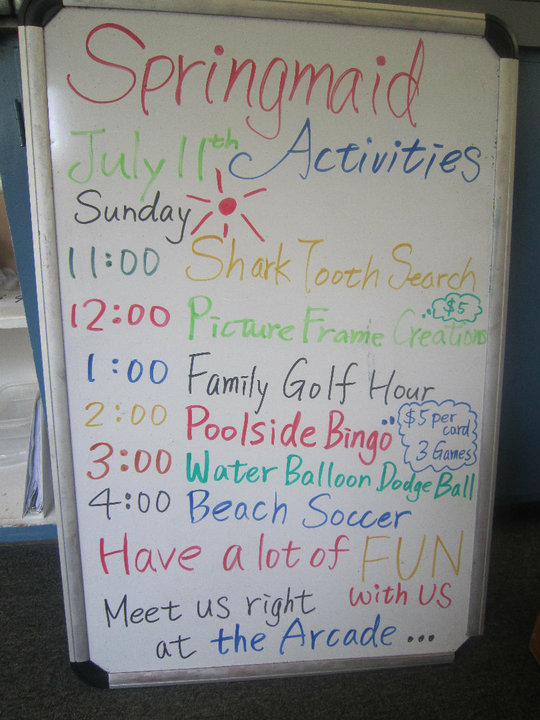 Springmaid
July 11th Activities
Sunday
11:00 Shark Tooth Search
12:00 Picture Frame Creations $5
1:00 Family Golf Hour
2:00 Poolside Bingo $5 per card 3 Games
3:00 Water Balloon Dodge Ball
4:00 Beach Soccer
Have a lot of FUN
with US
Meet us right
at the Arcade...